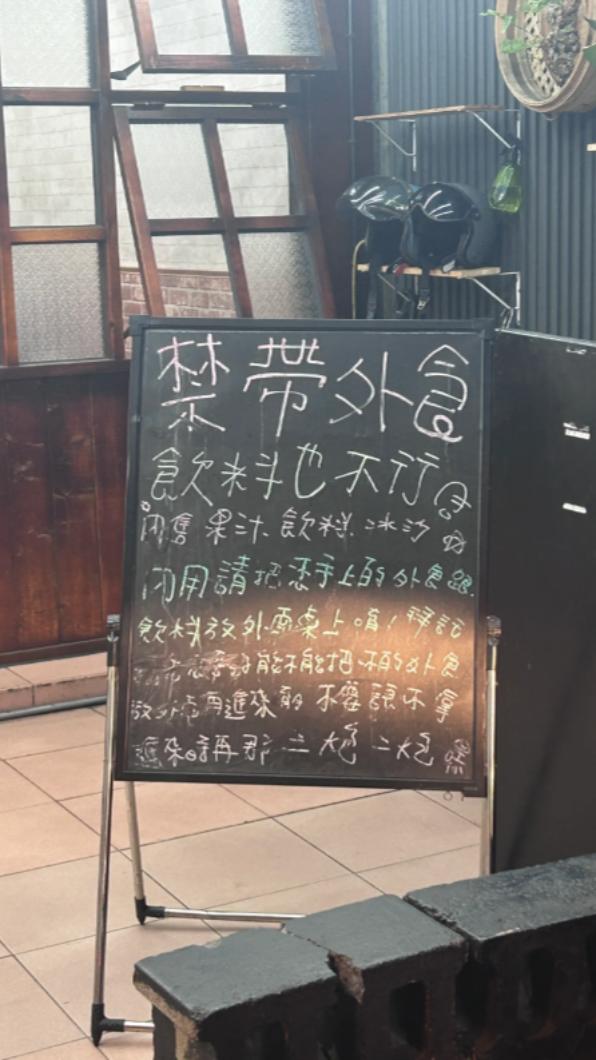 禁帶外食
飲料也不行
內售 果汁. 飲料. 冰沙
內用請把您手上的外食跟
飲料放外面桌上唷! 拜託
能不能把 外食
放外面再進來 不要讓不
進來 再